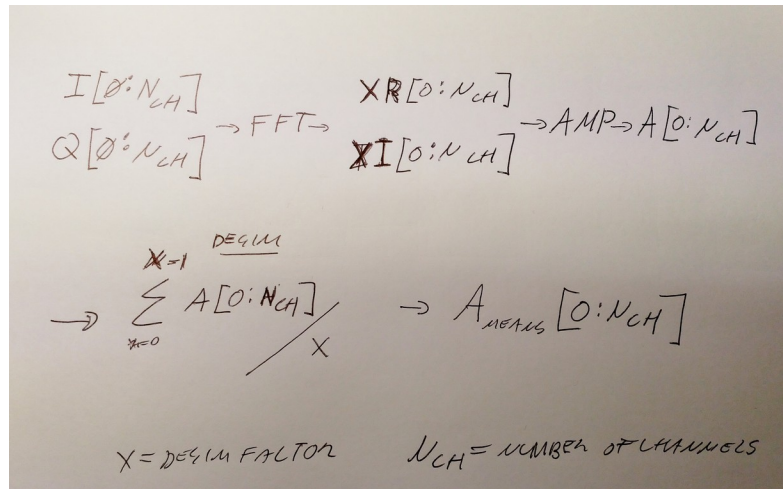 I[Ø:N_CH]
Q[Ø:N_CH]
→ FFT →
XR[O:N_CH]
XI[O:N_CH]
→ AMP → A[O:N_CH]
DECIM
→ X-1 ∑ n=0 A[O:N_CH] / X → A_MEANS [O:N_CH]
X = DECIM FACTOR
N_CH = NUMBER OF CHANNELS